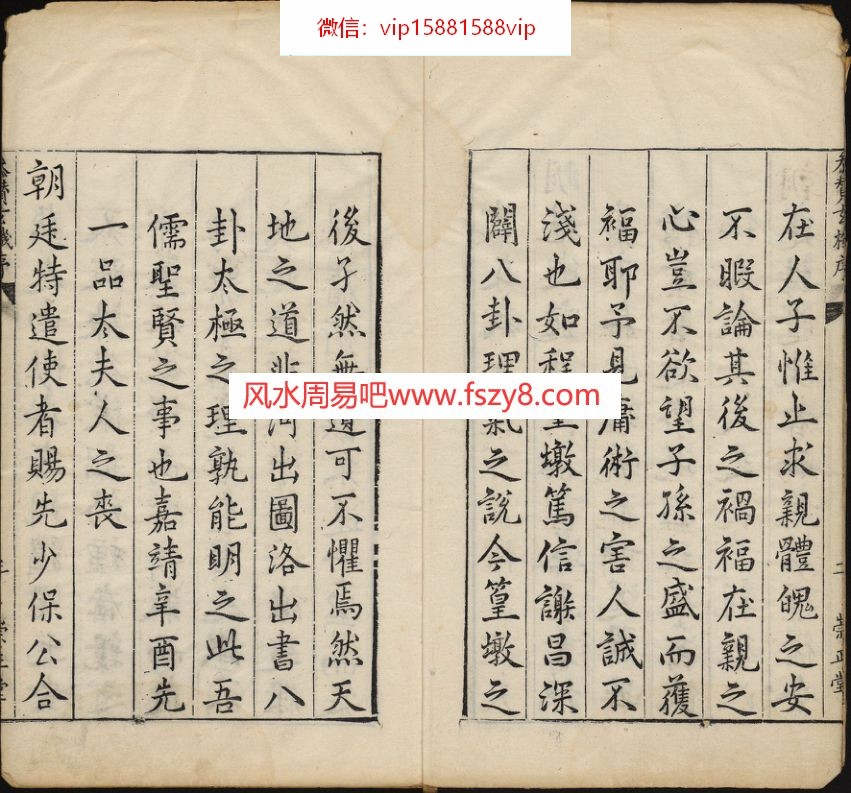 微信：vip15881588vip
參贊玄機序 二 崇正堂
在人子惟止求親體魄之安
不暇論其後之禍福在親之
心豈不欲望子孫之盛而獲
福耶予見庸術之害人誠不
淺也如程篁墩篤信謝昌深
闢八卦理氣之說今篁墩之
風水周易吧www.fszy8.com
後孑然無遺可不懼焉然天
地之道非河出圖洛出書八
卦太極之理孰能明之此吾
儒聖賢之事也嘉靖辛酉先
一品太夫人之喪
朝廷特遣使者賜先少保公合
參贊玄機序 三